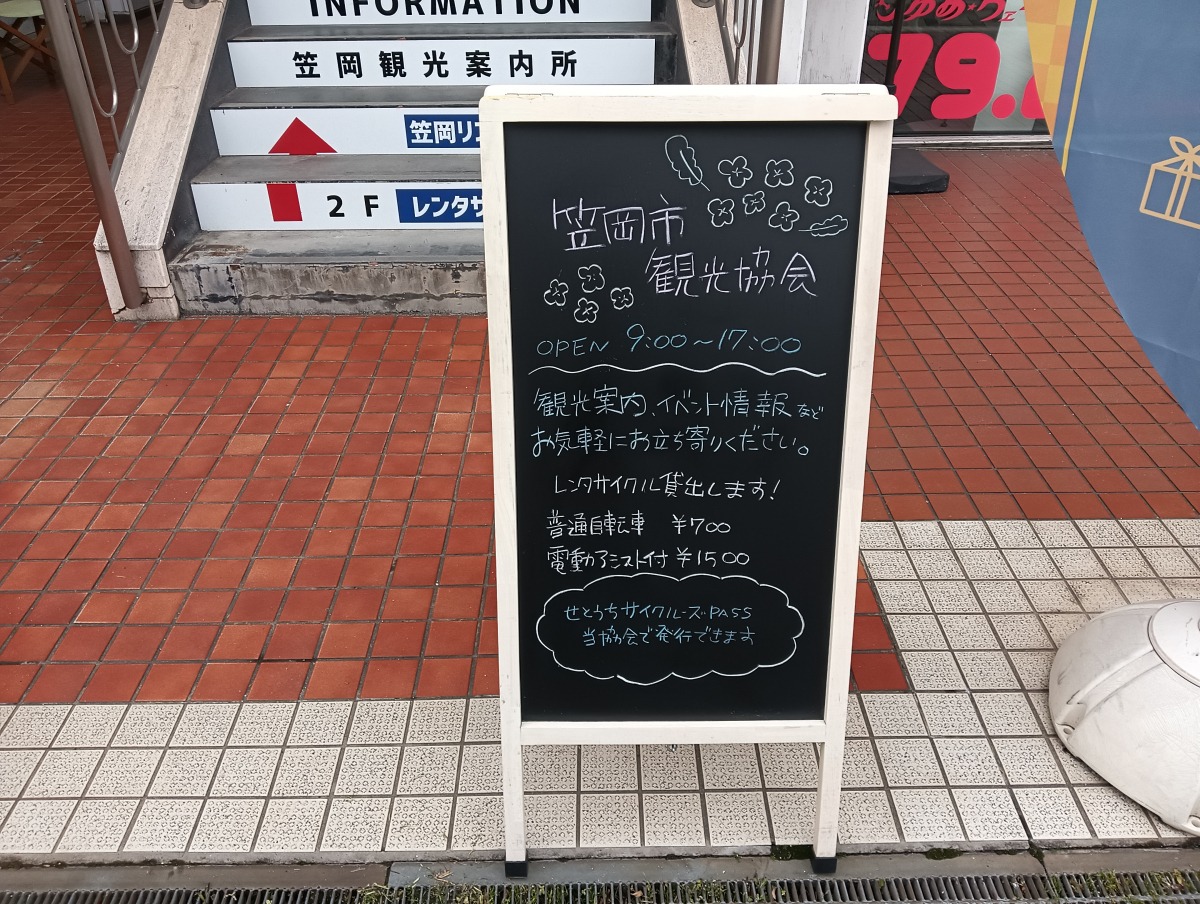 INFORMATION
笠岡観光案内所
笠岡リ
2F レンタサ
79.
笠岡市
観光協会
OPEN 9:00~17:00
観光案内、イベント情報など
お気軽にお立ち寄りください。
レンタサイクル貸出します!
普通自転車 ¥700
電動アシスト付 ¥1500
せとうちサイクルーズPASS
当協会で発行できます